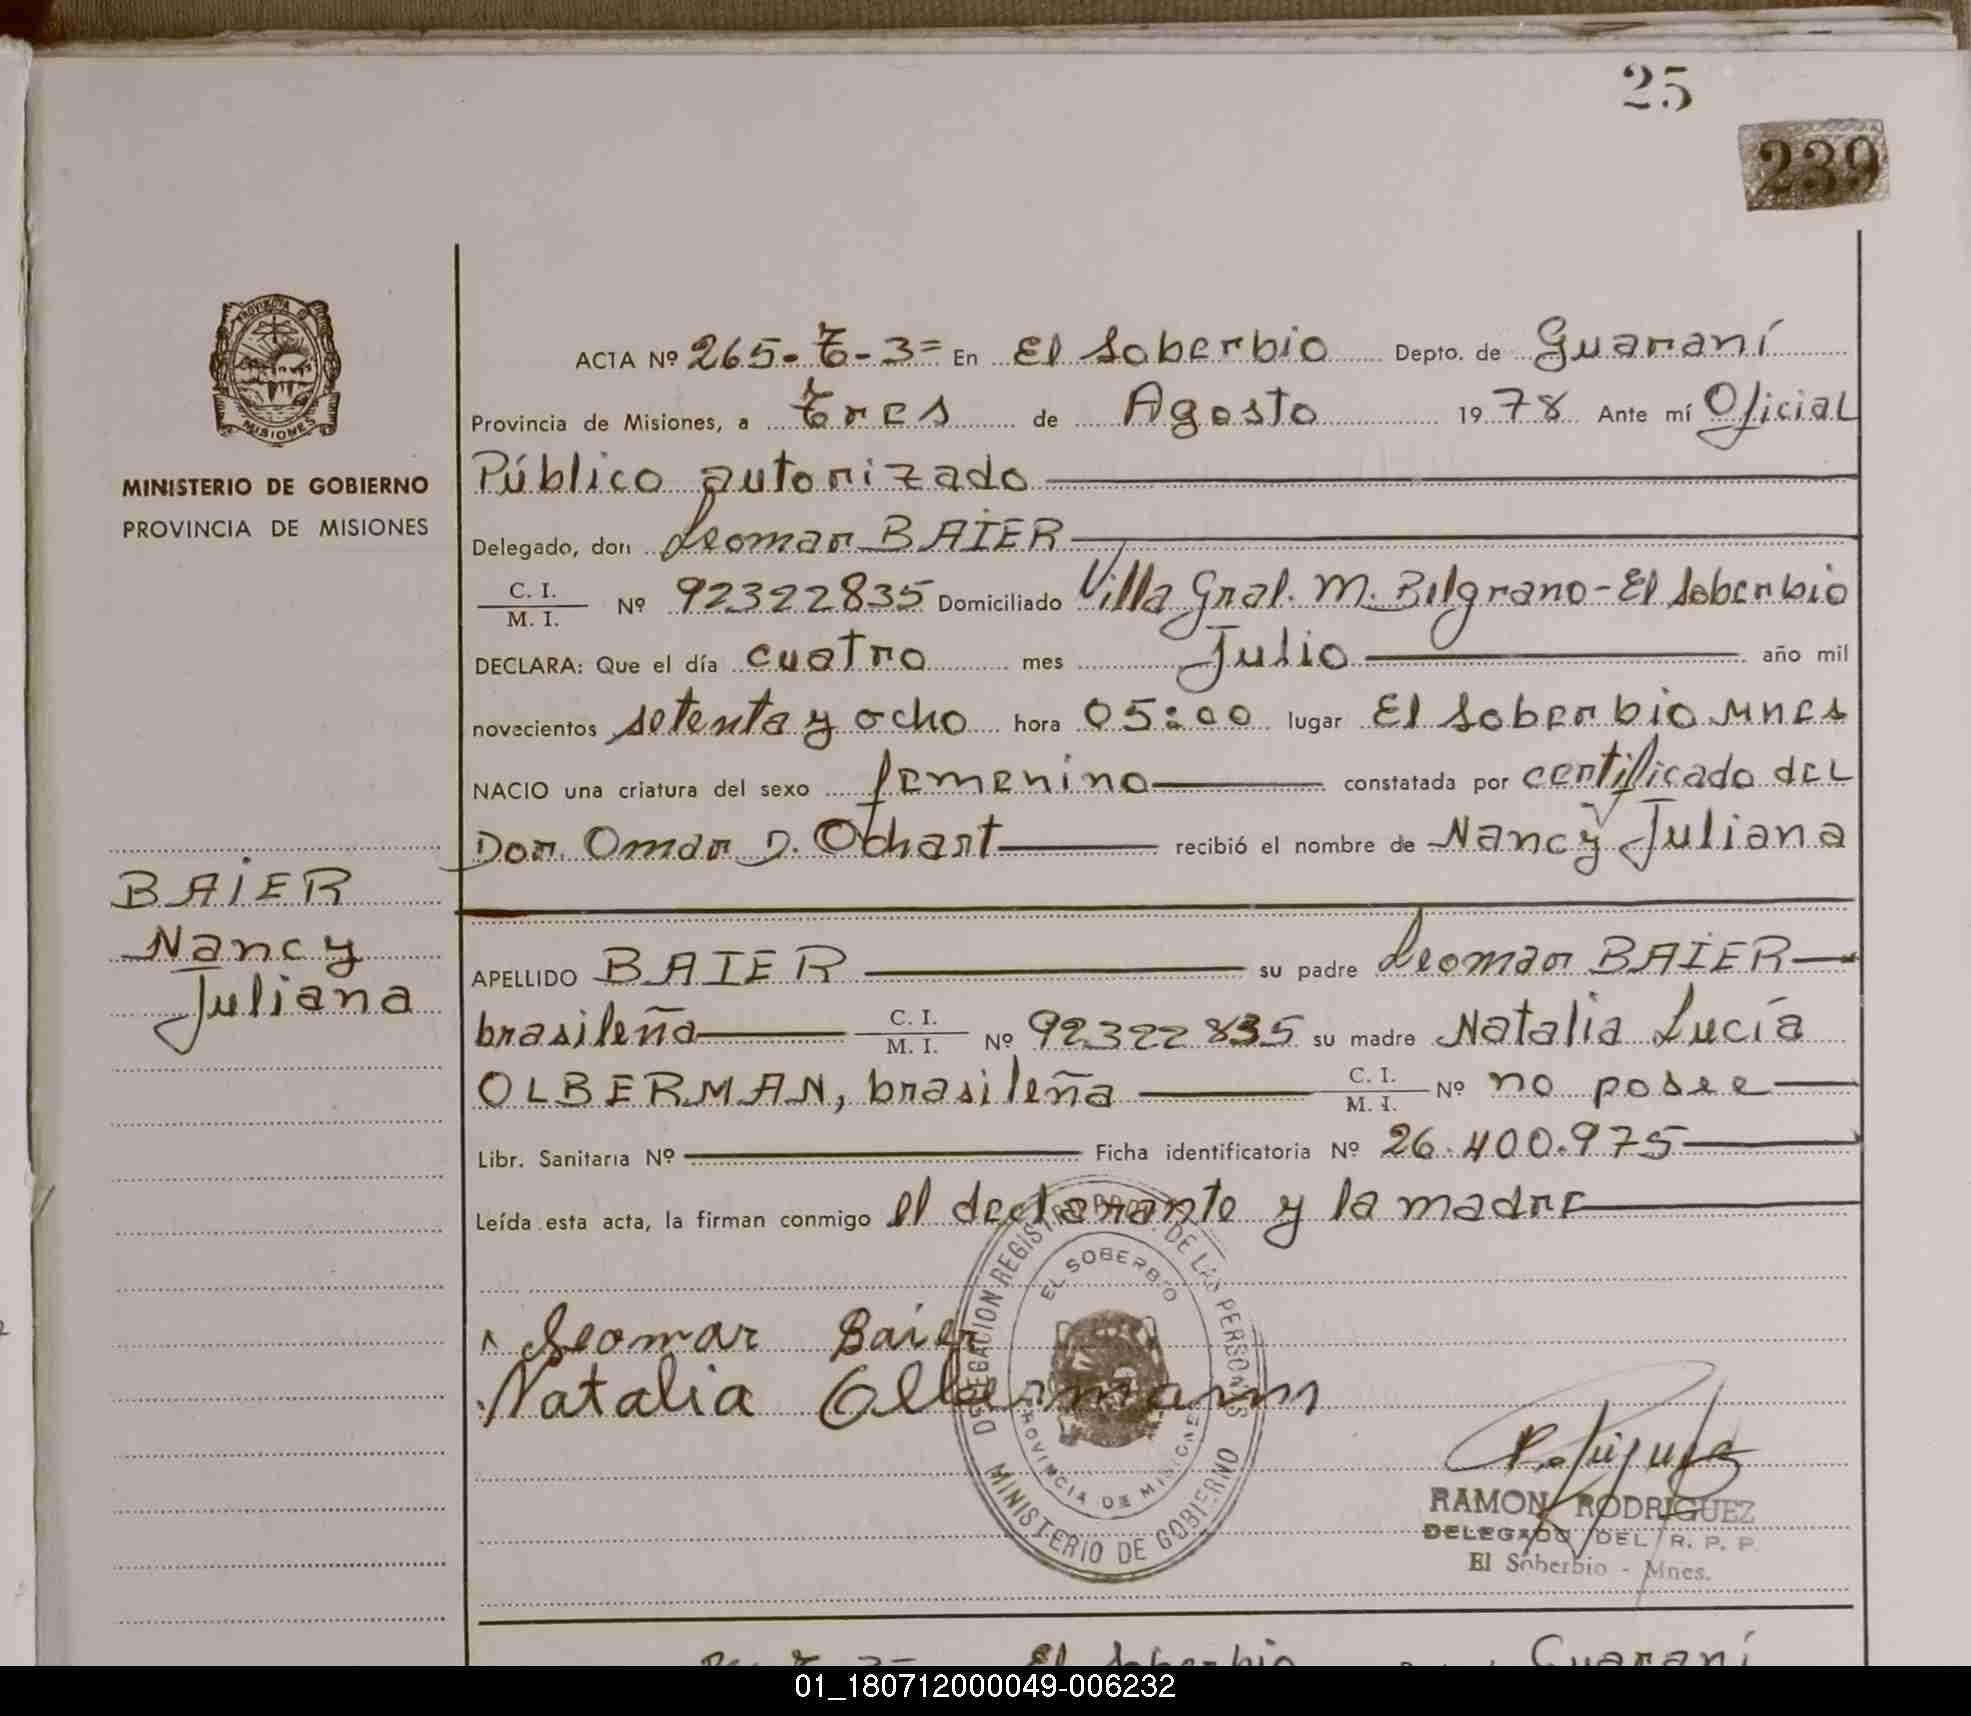 25
239
PROVINCIA
MISIONES
MINISTERIO DE GOBIERNO
PROVINCIA DE MISIONES
BAIER
Nancy
Juliana
ACTA Nº 265-T-3= En El Soberbio Depto. de Guaraní
Provincia de Misiones, a Tres de Agosto 1978 Ante mí Oficial
Público autorizado
Delegado, don Leomar BAIER
C. I. / M. I. Nº 92322835 Domiciliado Villa Gral. M. Belgrano-El Soberbio
DECLARA: Que el día cuatro mes Julio año mil
novecientos setenta y ocho hora 05:00 lugar El Soberbio Mnes
NACIO una criatura del sexo femenino constatada por certificado del
Dor. Omar D. Ochart recibió el nombre de Nancy Juliana
APELLIDO BAIER su padre Leomar BAIER
brasileña C. I. / M. I. Nº 92322835 su madre Natalia Lucía
OLBERMAN, brasileña C. I. / M. I. Nº no posee
Libr. Sanitaria Nº Ficha identificatoria Nº 26.400.975
Leída esta acta, la firman conmigo el declarante y la madre
Leomar Baier
Natalia Olbermann
EL SOBERBIO
PROVINCIA DE MISIONES
MINISTERIO DE GOBIERNO
RAMON RODRIGUEZ
DELEGADO DEL R. P. P.
El Soberbio - Mnes.
El Soberbio Guaraní
01_180712000049-006232